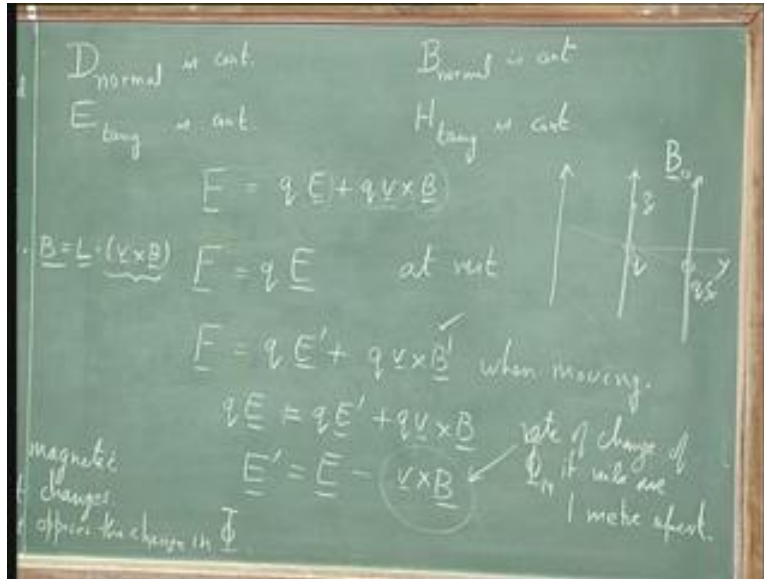 D normal is cont.
B normal is cont
E tang is cont.
H tang is cont
F = q E + q v × B
B₀
B = L · (v × B)
F = q E at rest
q
y
F = q E' + q v × B' when moving.
q E = q E' + q v × B
E' = E − v × B
rate of change of
Φ if rails are
1 metre apart.
magnetic
changes
opposes the change in Φ